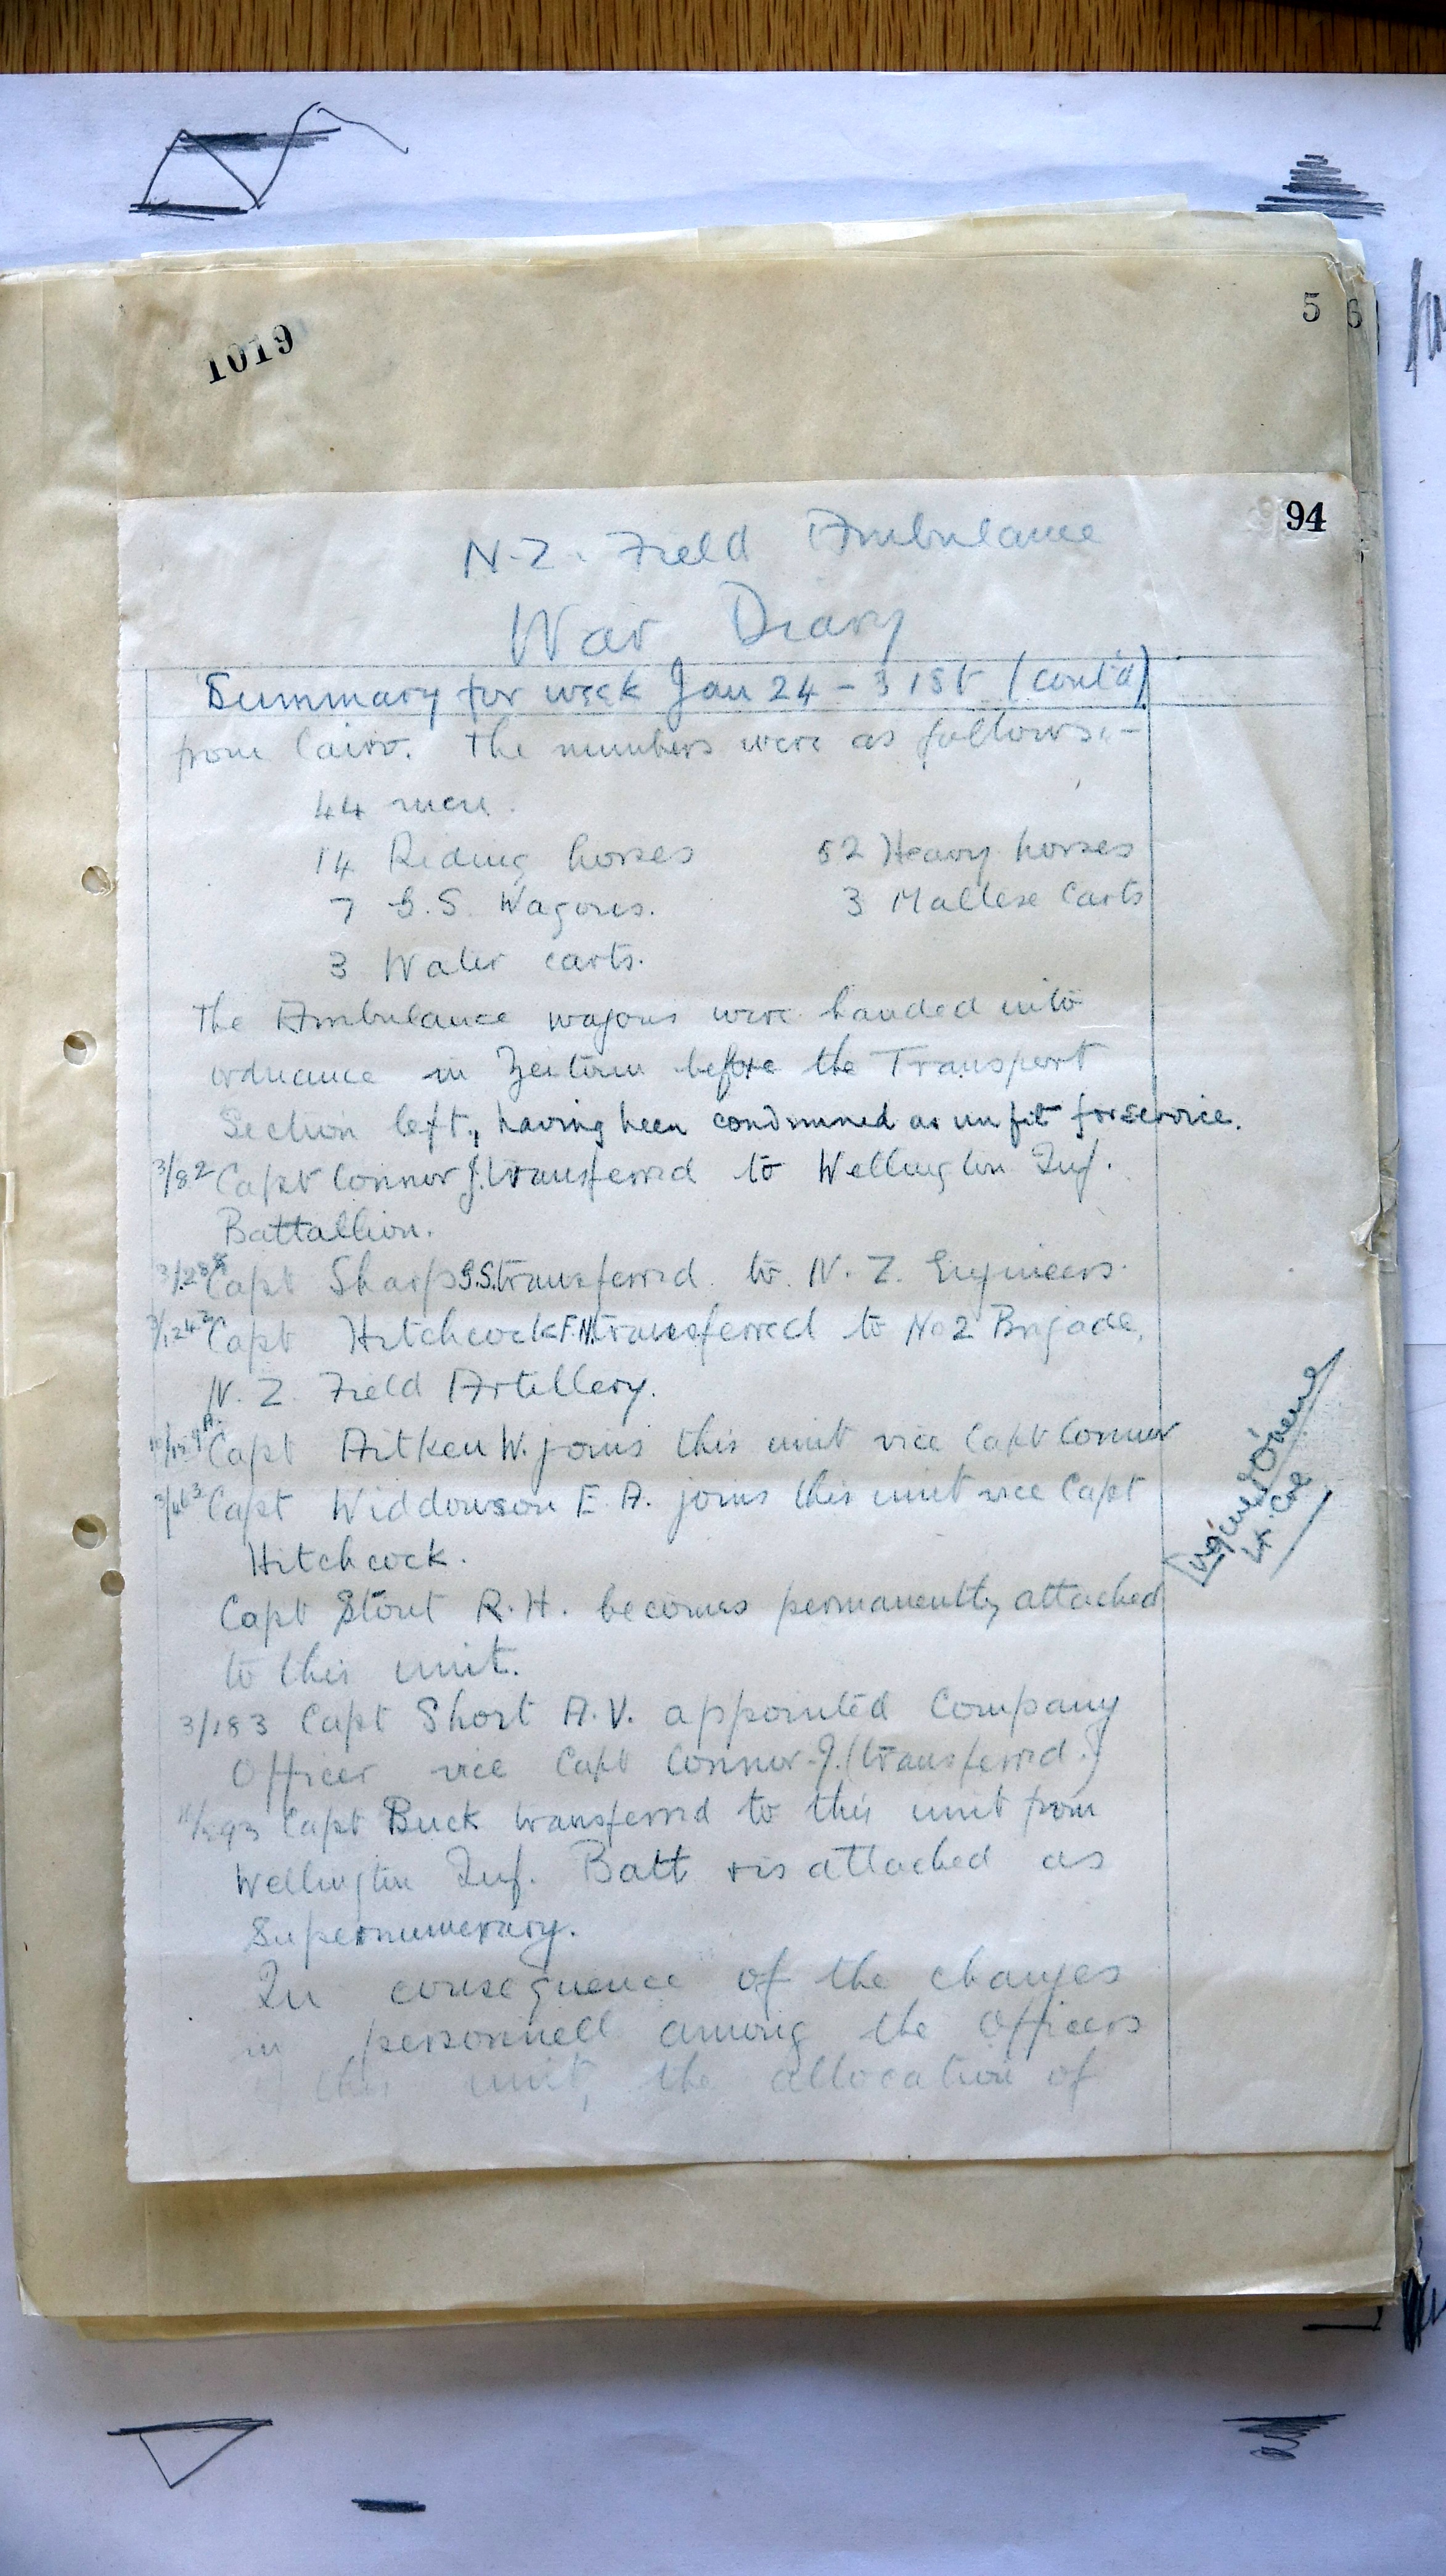 1019
5 6
94
N.Z. Field Ambulance
War Diary
Summary for week Jan 24 - 31st (cont'd)
from Cairo. The numbers were as follows:-
44 men.
14 Riding horses 52 Heavy horses
7 G.S. Wagons. 3 Maltese Carts
3 Water carts.
The Ambulance wagons were handed into
ordnance in Zeitoun before the Transport
Section left, having been condemned as unfit for service.
3/82 Capt Connor J. transferred to Wellington Inf.
Battallion.
Capt Sharp G.S. transferred to N.Z. Engineers.
Capt Hitchcock F.N. transferred to No 2 Brigade,
N.Z. Field Artillery.
Capt Aitken W. joins this unit vice Capt Connor
Capt Widdowson E.A. joins this unit vice Capt
Hitchcock.
Capt Stout R.H. becomes permanently attached
to this unit.
3/183 Capt Short A.V. appointed Company
Officer vice Capt Connor J. (transferred.)
Capt Buck transferred to this unit from
Wellington Inf. Batt & is attached as
Supernumerary.
In consequence of the changes
in personnell among the Officers
this unit, the allocation of
Lt. Col